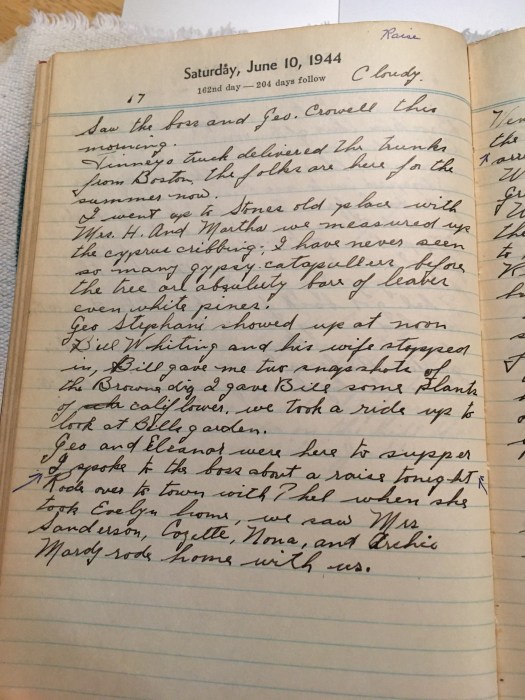 Raise
Saturday, June 10, 1944
162nd day — 204 days follow
Cloudy.
17
Saw the boss and Geo. Crowell this
morning.
Tinneys truck delivered the trunks
from Boston, the folks are here for the
summer now.
I went up to Stones old place with
Mrs. H. And Martha we measured up
the cyprus cribbing; I have never seen
so many gypsy catapullers before
the tree are absolutly bare of leaves
even white pines.
Geo Stephani showed up at noon
Bill Whiting and his wife stopped
in, Bill gave me two snapshots of
the Browns dig I gave Bill some plants
of califlower, we took a ride up to
look at Bills garden.
Geo and Eleanor were here to supper
I spoke to the boss about a raise tonight
Rode over to town with Phel when she
took Evelyn home, we saw Mrs
Sanderson, Cozette, Nona, and Archie
Mardy rode home with us.